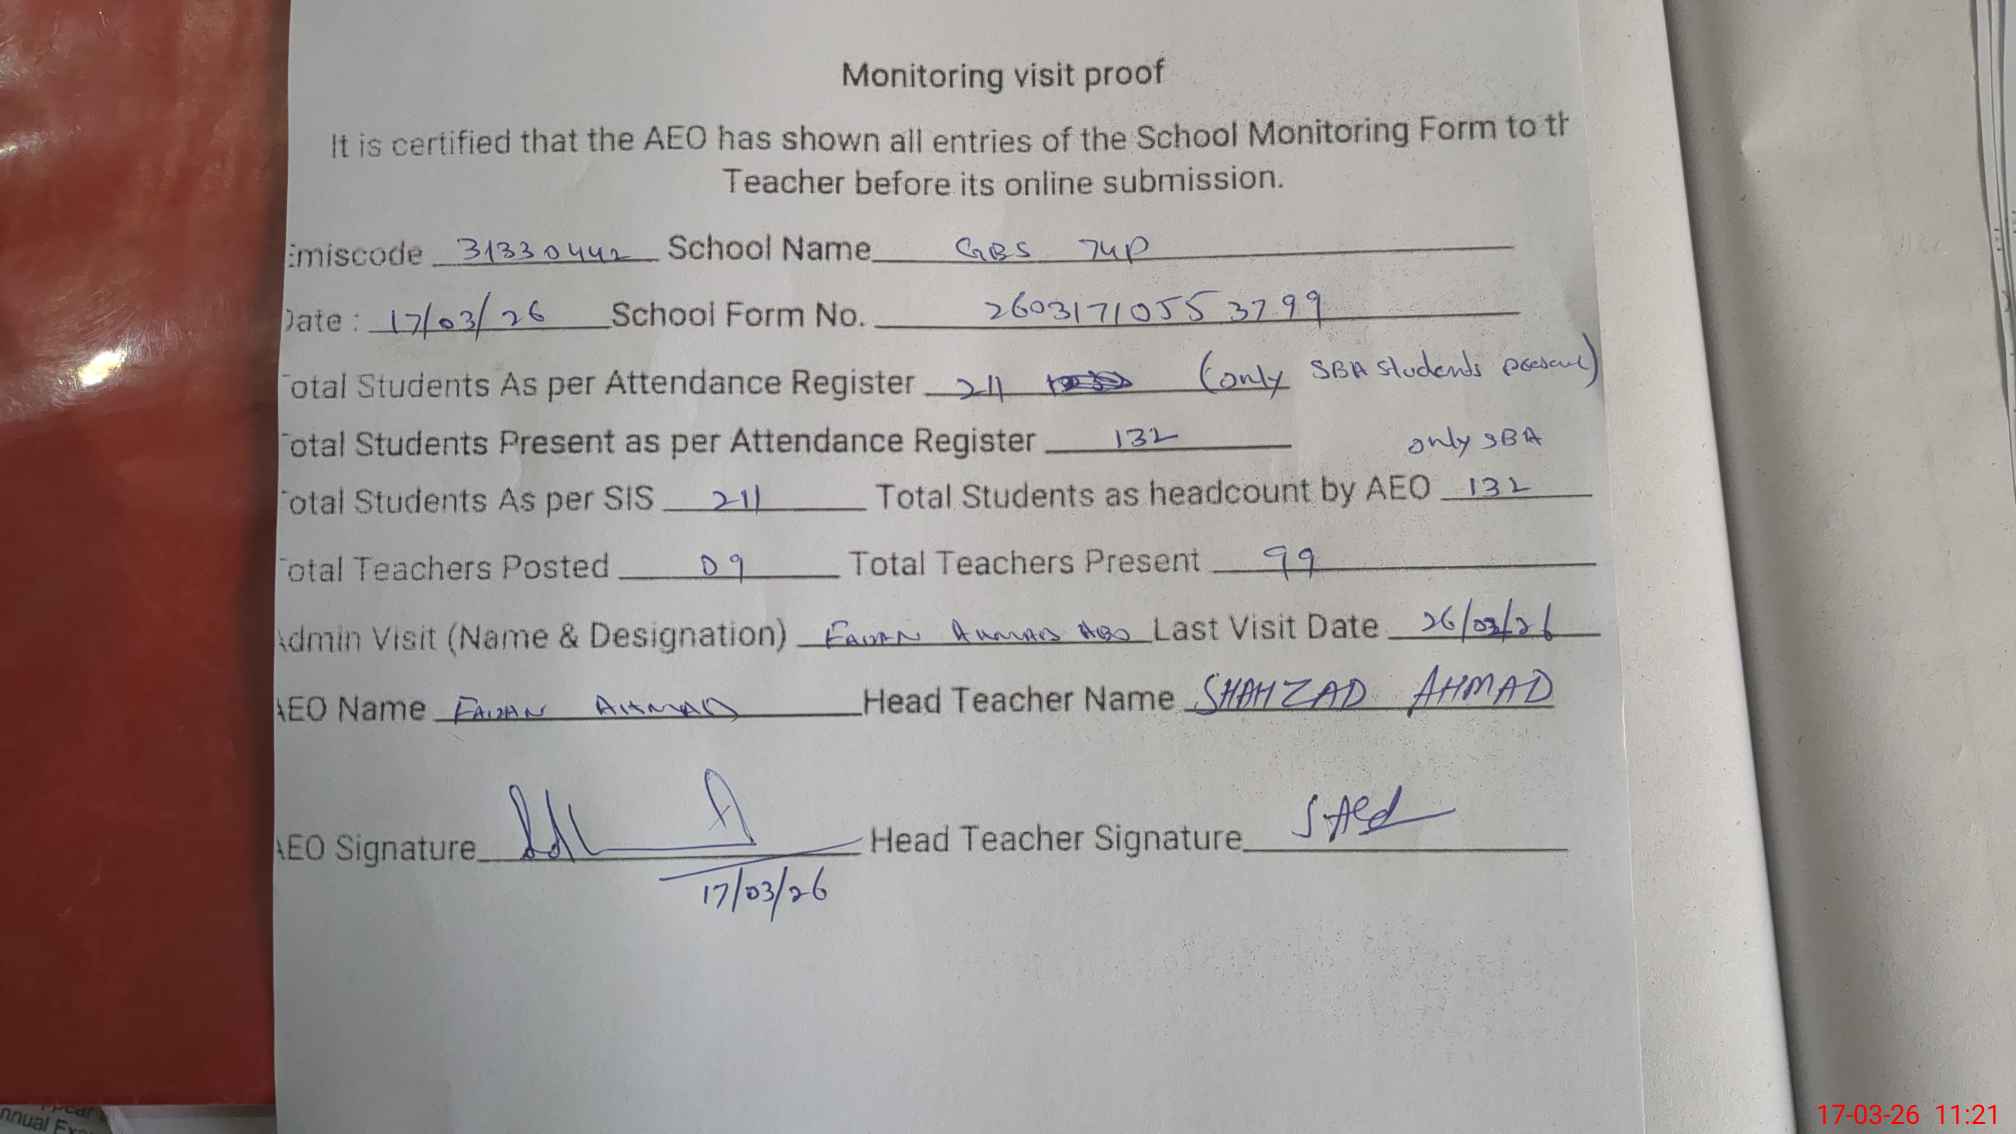 Monitoring visit proof
It is certified that the AEO has shown all entries of the School Monitoring Form to th
Teacher before its online submission.
Emiscode 31330442 School Name GBS 74P
Date : 17/03/26 School Form No. 26031710553799
Total Students As per Attendance Register 211 (only SBA students present)
Total Students Present as per Attendance Register 132 only SBA
Total Students As per SIS 211 Total Students as headcount by AEO 132
Total Teachers Posted 09 Total Teachers Present 99
Admin Visit (Name & Designation) AHMAD AEO Last Visit Date 26/02/26
AEO Name AHMAD Head Teacher Name SHAHZAD AHMAD
AEO Signature Head Teacher Signature
17/03/26
nnual
17-03-26 11:21